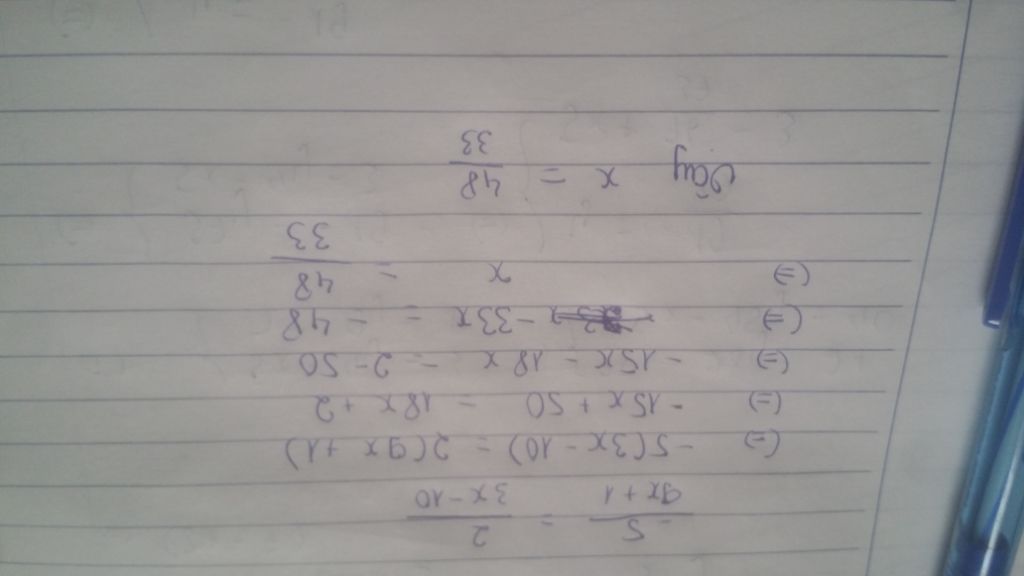 -5/9x+1 = 2/3x-10
(=) -5(3x-10) = 2(9x+1)
(=) -15x+50 = 18x+2
(=) -15x-18x = 2-50
(=) -33x = -48
(=) x = 48/33
Vậy x = 48/33